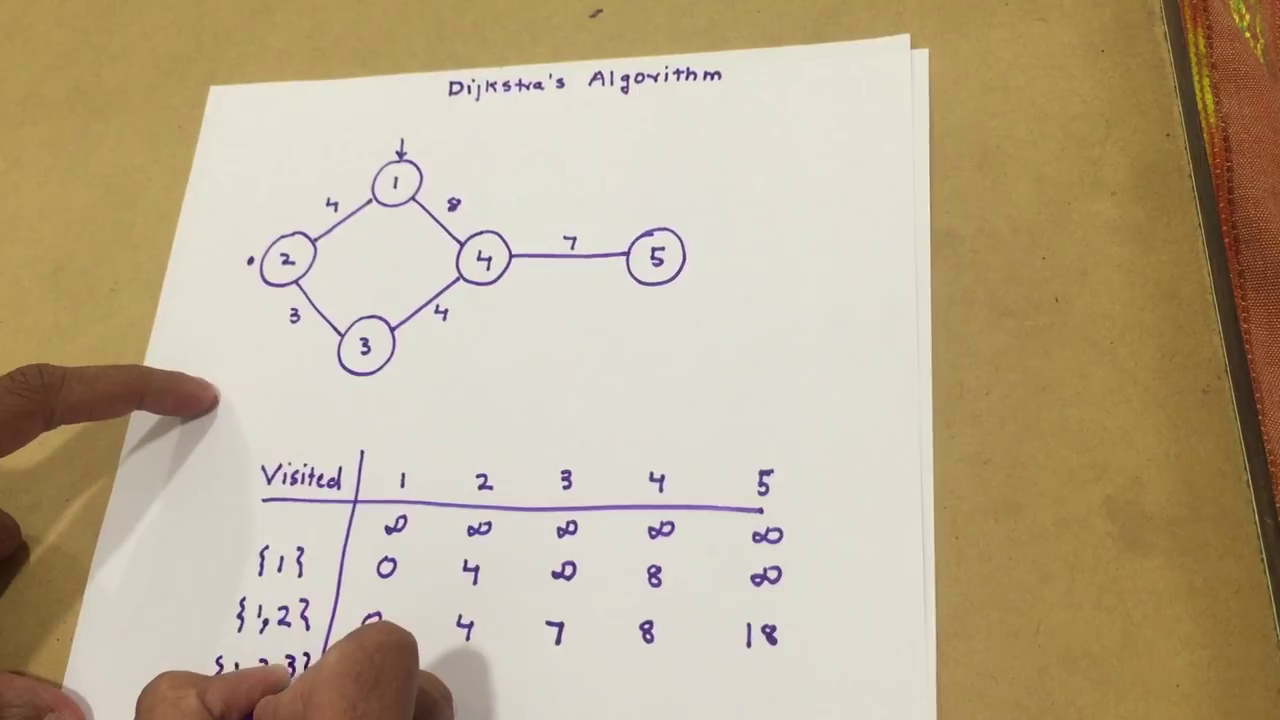 Dijkstra's Algorithm
1
4 8
2 4 7 5
3 4
3
Visited 1 2 3 4 5
∞ ∞ ∞ ∞ ∞
{1} 0 4 ∞ 8 ∞
{1,2} 0 4 7 8 18
3}